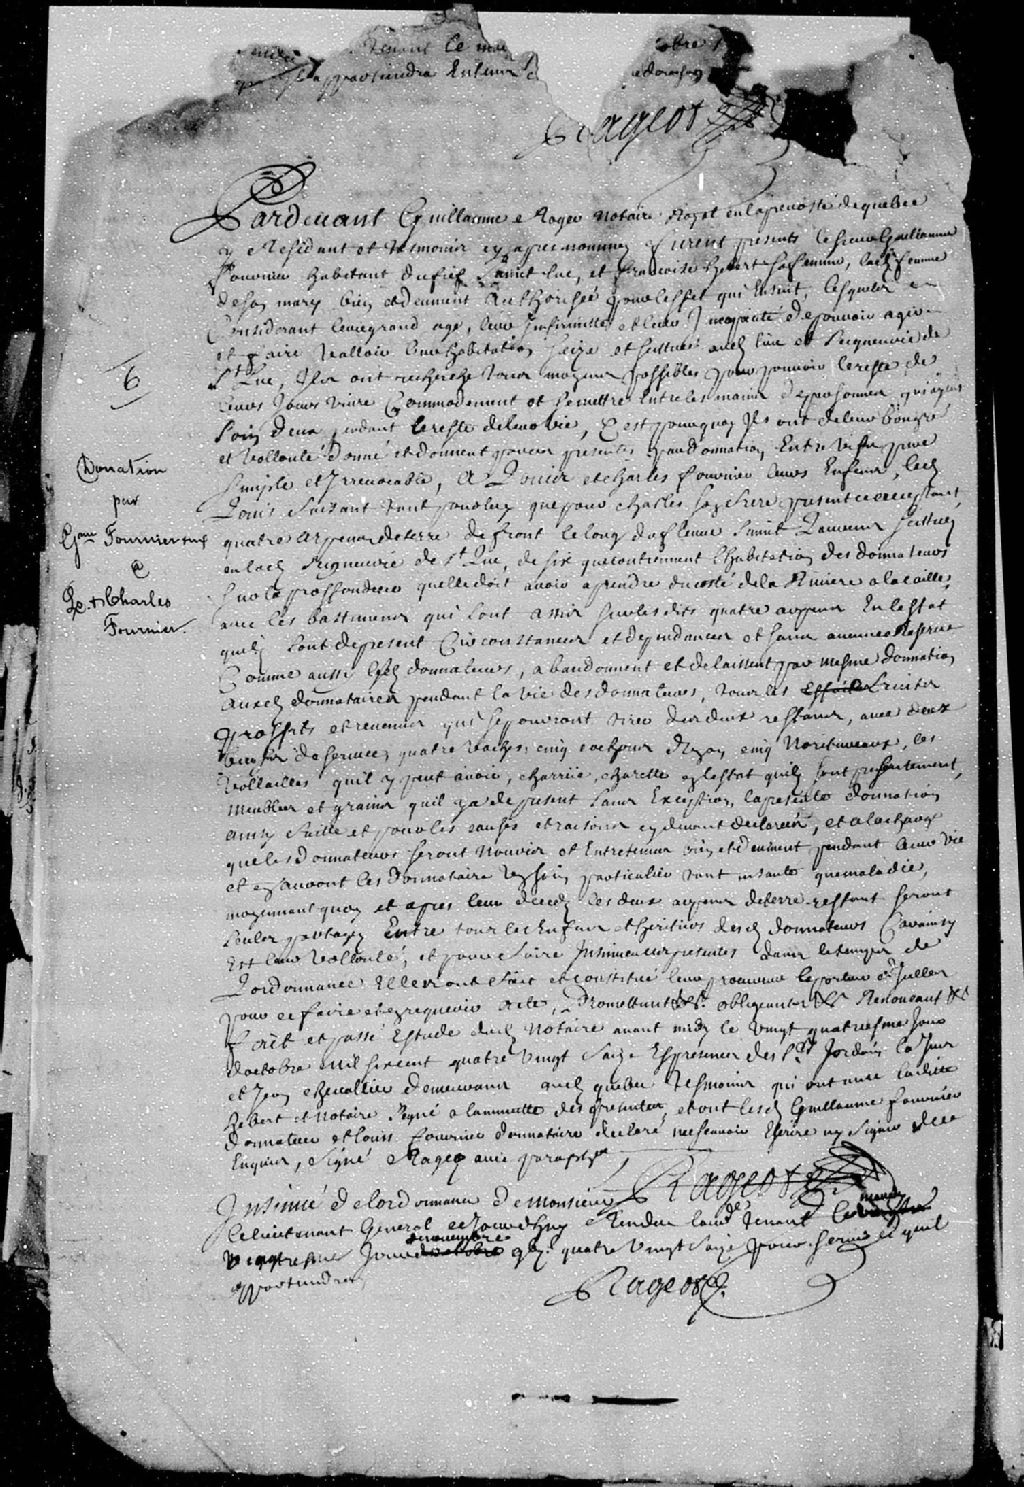 tenant ce
appartiendra
Rageot
Pardevant Guillaume Roger Notaire Royal en la prevosté de quebec
y Residant et tesmoins cy apres nommez furent presents le sieur Guillaume
fournier habitant du fief Sainct luc, et francoise hebert sa femme, lad. femme
de son mary bien et deument authorisée pour l'effet qui Ensuit, lesquels en
Considerant leur grand age, leur Infirmittes et leur Incapacité de pouvoir agir
et faire valloir leur habitation seize et scittuée aud. lieu et Seigneurie de
St Luc, Ils ont recherché tous moyens possibles pour pouvoir le reste de
leurs Jours vivre Commodement et se mettre Entre les mains de personnes qui ayent
soin deux pendant le reste de leur vie, C'est pourquoy Ils ont de leur bon gré
et Vollonté donné et donnent par ces presentes par donnation Entre vifs pure
simple et Irrevocable, A Louis et Charles fournier leurs Enfens, led.
Louis faisant tant pour luy que pour Charles son frere present ce acceptant
quatre arpens de terre de front le long du fleuve Sainct Laurens scittuez
en lad. Seigneurie de St Luc, de six que contiennent l'habitation des donnateurs
sur la proffondeur quelle doit avoir a prendre du costé de la Riviere a la caille,
avec les bastimens qui sont assis sur lesdits quatre arpens En lestat
quils sont de present Circonstances et dependances et sans aucune Reserve
Comme aussi lesd. donnateurs, abandonnent et delaissent par mesme donnation
ausd. donnataires pendant la vie des donnateurs, tous les fruits
proffits et revenus qui se pourront tirer des deux restans, avec deux
beufs de service, quatre vaches, cinq cochons dizon, cinq Noritureaux, les
vollailles quil y peut avoir, charrüe, charette en lestat quils sont presentement,
meubles et grains quil y a de present sans Exception, la presente donnation
ainsy faitte et pour les causes et raisons cy devant declarées, et a la charge
que les donnateurs seront Nouris et Entretenus bien et deument pendant leur vie
et en auront les donnataires un soin particulier tant en santé que maladie,
moyennant quoy et apres leur deceds les deux arpens de terre restant seront
seules partagés Entre tous les Enfens et heritiers desd. donnateurs Car ainsy
Est leur Vollonté, et pour faire Insinuer ces presentes dans le temps de
Lordonnance Elles ont fait et constitué leur procureur le porteur dicelles
pour ce faire et en requerir acte, Promettant &c. obligeant &c. Renonceant &c.
faict et passé Estude dud. Notaire avant midy le Vingt quatriesme Jour
doctobre mil six cent quatre Vingt Seize En presence des Srs Jordain la Jus
et Jean chevallier demeurans aud. quebec tesmoins qui ont avec ladite
hebert et Notaire Signé a la minutte des presentes, et ont lesd. Guillaume fournier
donnateur et louis fournier donnataire declaré ne scavoir Escrire ny Signer de ce
Enquis, Signé Roger avec paraphe
Rageot
Insinué de lordonnance de Monsieur
le lieutenant General ce Jourdhuy
Jour de novembre quatre Vingt Seize pour servir ce quil
appartiendra
Rageot
6
Donation
par
Gme Fournier
@
Ls + Charles
Fournier.